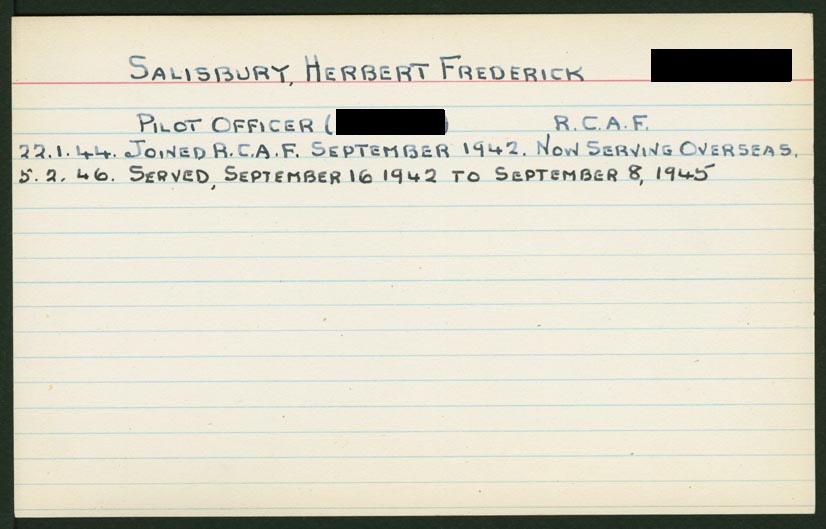 SALISBURY, HERBERT FREDERICK
PILOT OFFICER ( ) R.C.A.F.
22.1.44. JOINED R.C.A.F. SEPTEMBER 1942. NOW SERVING OVERSEAS.
5.2.46. SERVED, SEPTEMBER 16 1942 TO SEPTEMBER 8, 1945